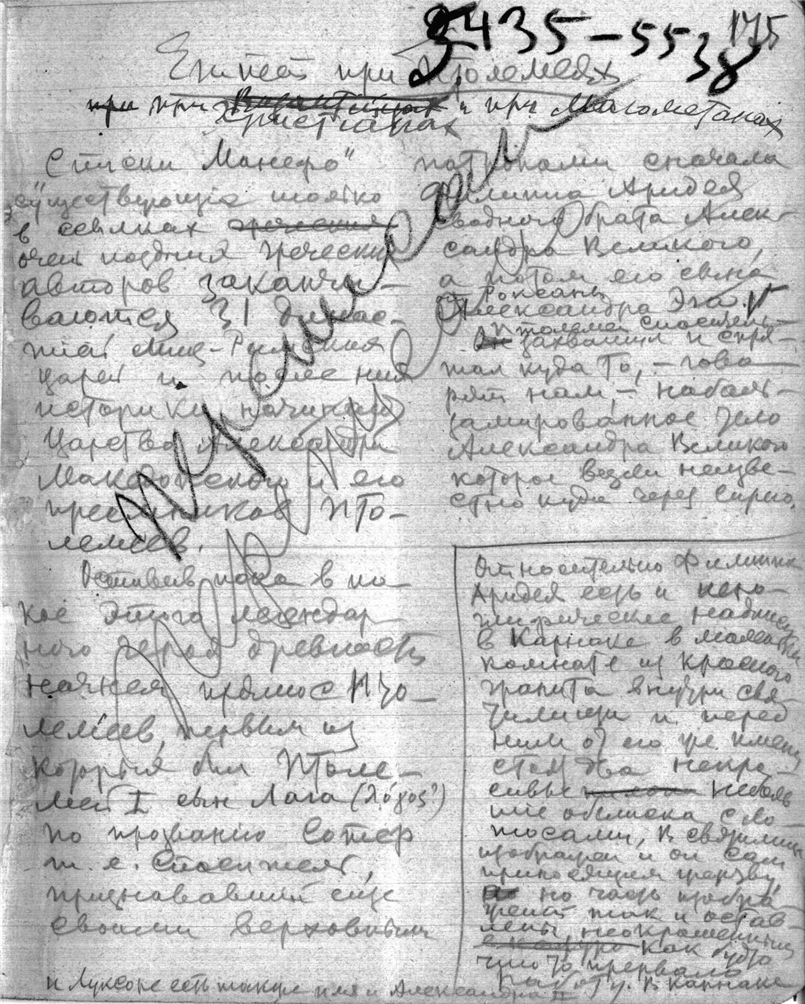 3435-5538
175
Египет при Птолемеях
при при Византийцах и при Магометанах
Христианах
Списки Манефо"
существующие только
в ссылках греческих
очень поздних греческих
авторов заканчи-
ваются 31 динас-
тией
царей и
историки начинают
Царство Александра
Македонского и его
преемников Пто-
лемеев.
Оставив пока в по-
кое этого легендар-
ного героя древность
начнем прямо с Пто-
лемеев, первым из
которых был Птоле-
мей I сын Лага (λόγος)
по прозванию Сотер
т.е. Спаситель,
признававший еще
своими верховными
патронами сначала
Филиппа Аридея
сводного брата Алек-
сандра Великого,
а потом его сына
от Роксаны
Александра Эга.
Птолемей Спаситель
Он захватил и спря-
тал куда то, – гово-
рят нам, – набаль-
замированное тело
Александра Великого
которое везли неизве-
стно куда через Сирию.
Относительно Филиппа
Аридея есть и иеро-
глифические надписи
в Карнаке в маленькой
комнате из красного
гранита внутри свя-
тилища и перед
ним от его же имени
стоят два некра-
сивые небольш
шие обелиска с ло-
тосами, в святилище
изображен и он сам
приносящий жертву,
но часть изобра-
жений так и остав-
лены неокрашенными
как будто
что то прервало
работу. В Карнаке
и Луксоре есть также имя и Александра II
Перепис